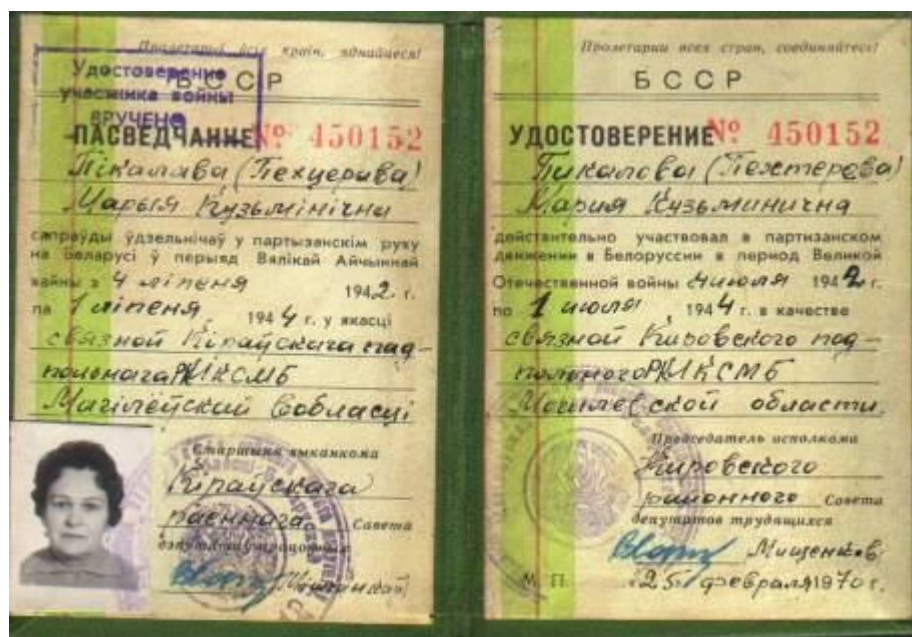 Пралетарыі ўсіх краін, яднайцеся!
Удостоверение
участника войны
ВРУЧЕНО
БССР
ПАСВЕДЧАННЕ № 450152
Пікалава (Пехцерава)
Марыя Кузьмінічна
сапраўды ўдзельнічаў у партызанскім руху
на Беларусі ў перыяд Вялікай Айчыннай
вайны з 4 ліпеня 1942 г.
па 1 ліпеня 1944 г. у якасці
связной Кіраўскага пад-
польнага РК ЛКСМБ
Магілёўскай вобласці
Старшыня выканкома
Кіраўскага
раённага Савета
дэпутатаў працоўных
Пролетарии всех стран, соединяйтесь!
БССР
УДОСТОВЕРЕНИЕ № 450152
Пикалова (Пехтерева)
Мария Кузьминична
действительно участвовал в партизанском
движении в Белоруссии в период Великой
Отечественной войны с 4 июля 1942 г.
по 1 июля 1944 г. в качестве
связной Кировского под-
польного РК ЛКСМБ
Могилевской области.
Председатель исполкома
Кировского
районного Совета
депутатов трудящихся
Мищенков
М. П. 25 февраля 1970 г.